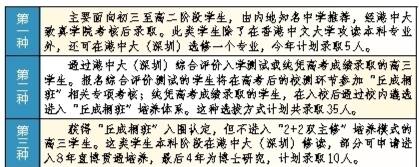 第一种
主要面向初三至高二阶段学生，由内地知名中学推荐，经港中大
敬真学院考核后录取。此类学生除了在香港中文大学攻读本科专业
外，还可在港中大（深圳）选修一个专业，今年计划录取5人。
第二种
通过港中大（深圳）综合评价入学测试或统凭高考成绩录取的高三
学生。报名综合评价测试的学生将在高考后的校测环节参加“丘成桐
班”相关专项考核；统凭高考成绩录取的学生，在入校后通过校内遴选
进入“丘成桐班”培养体系。这种选拔方式计划共录取35人。
第三种
获得“丘成桐班”入围认定，但不进入“2+2双主修”培养模式的
高三学生。这类学生本科阶段在港中大（深圳）修读，部分可申请进
入8年直博贯通培养，最后4年为博士研究，计划录取10人。